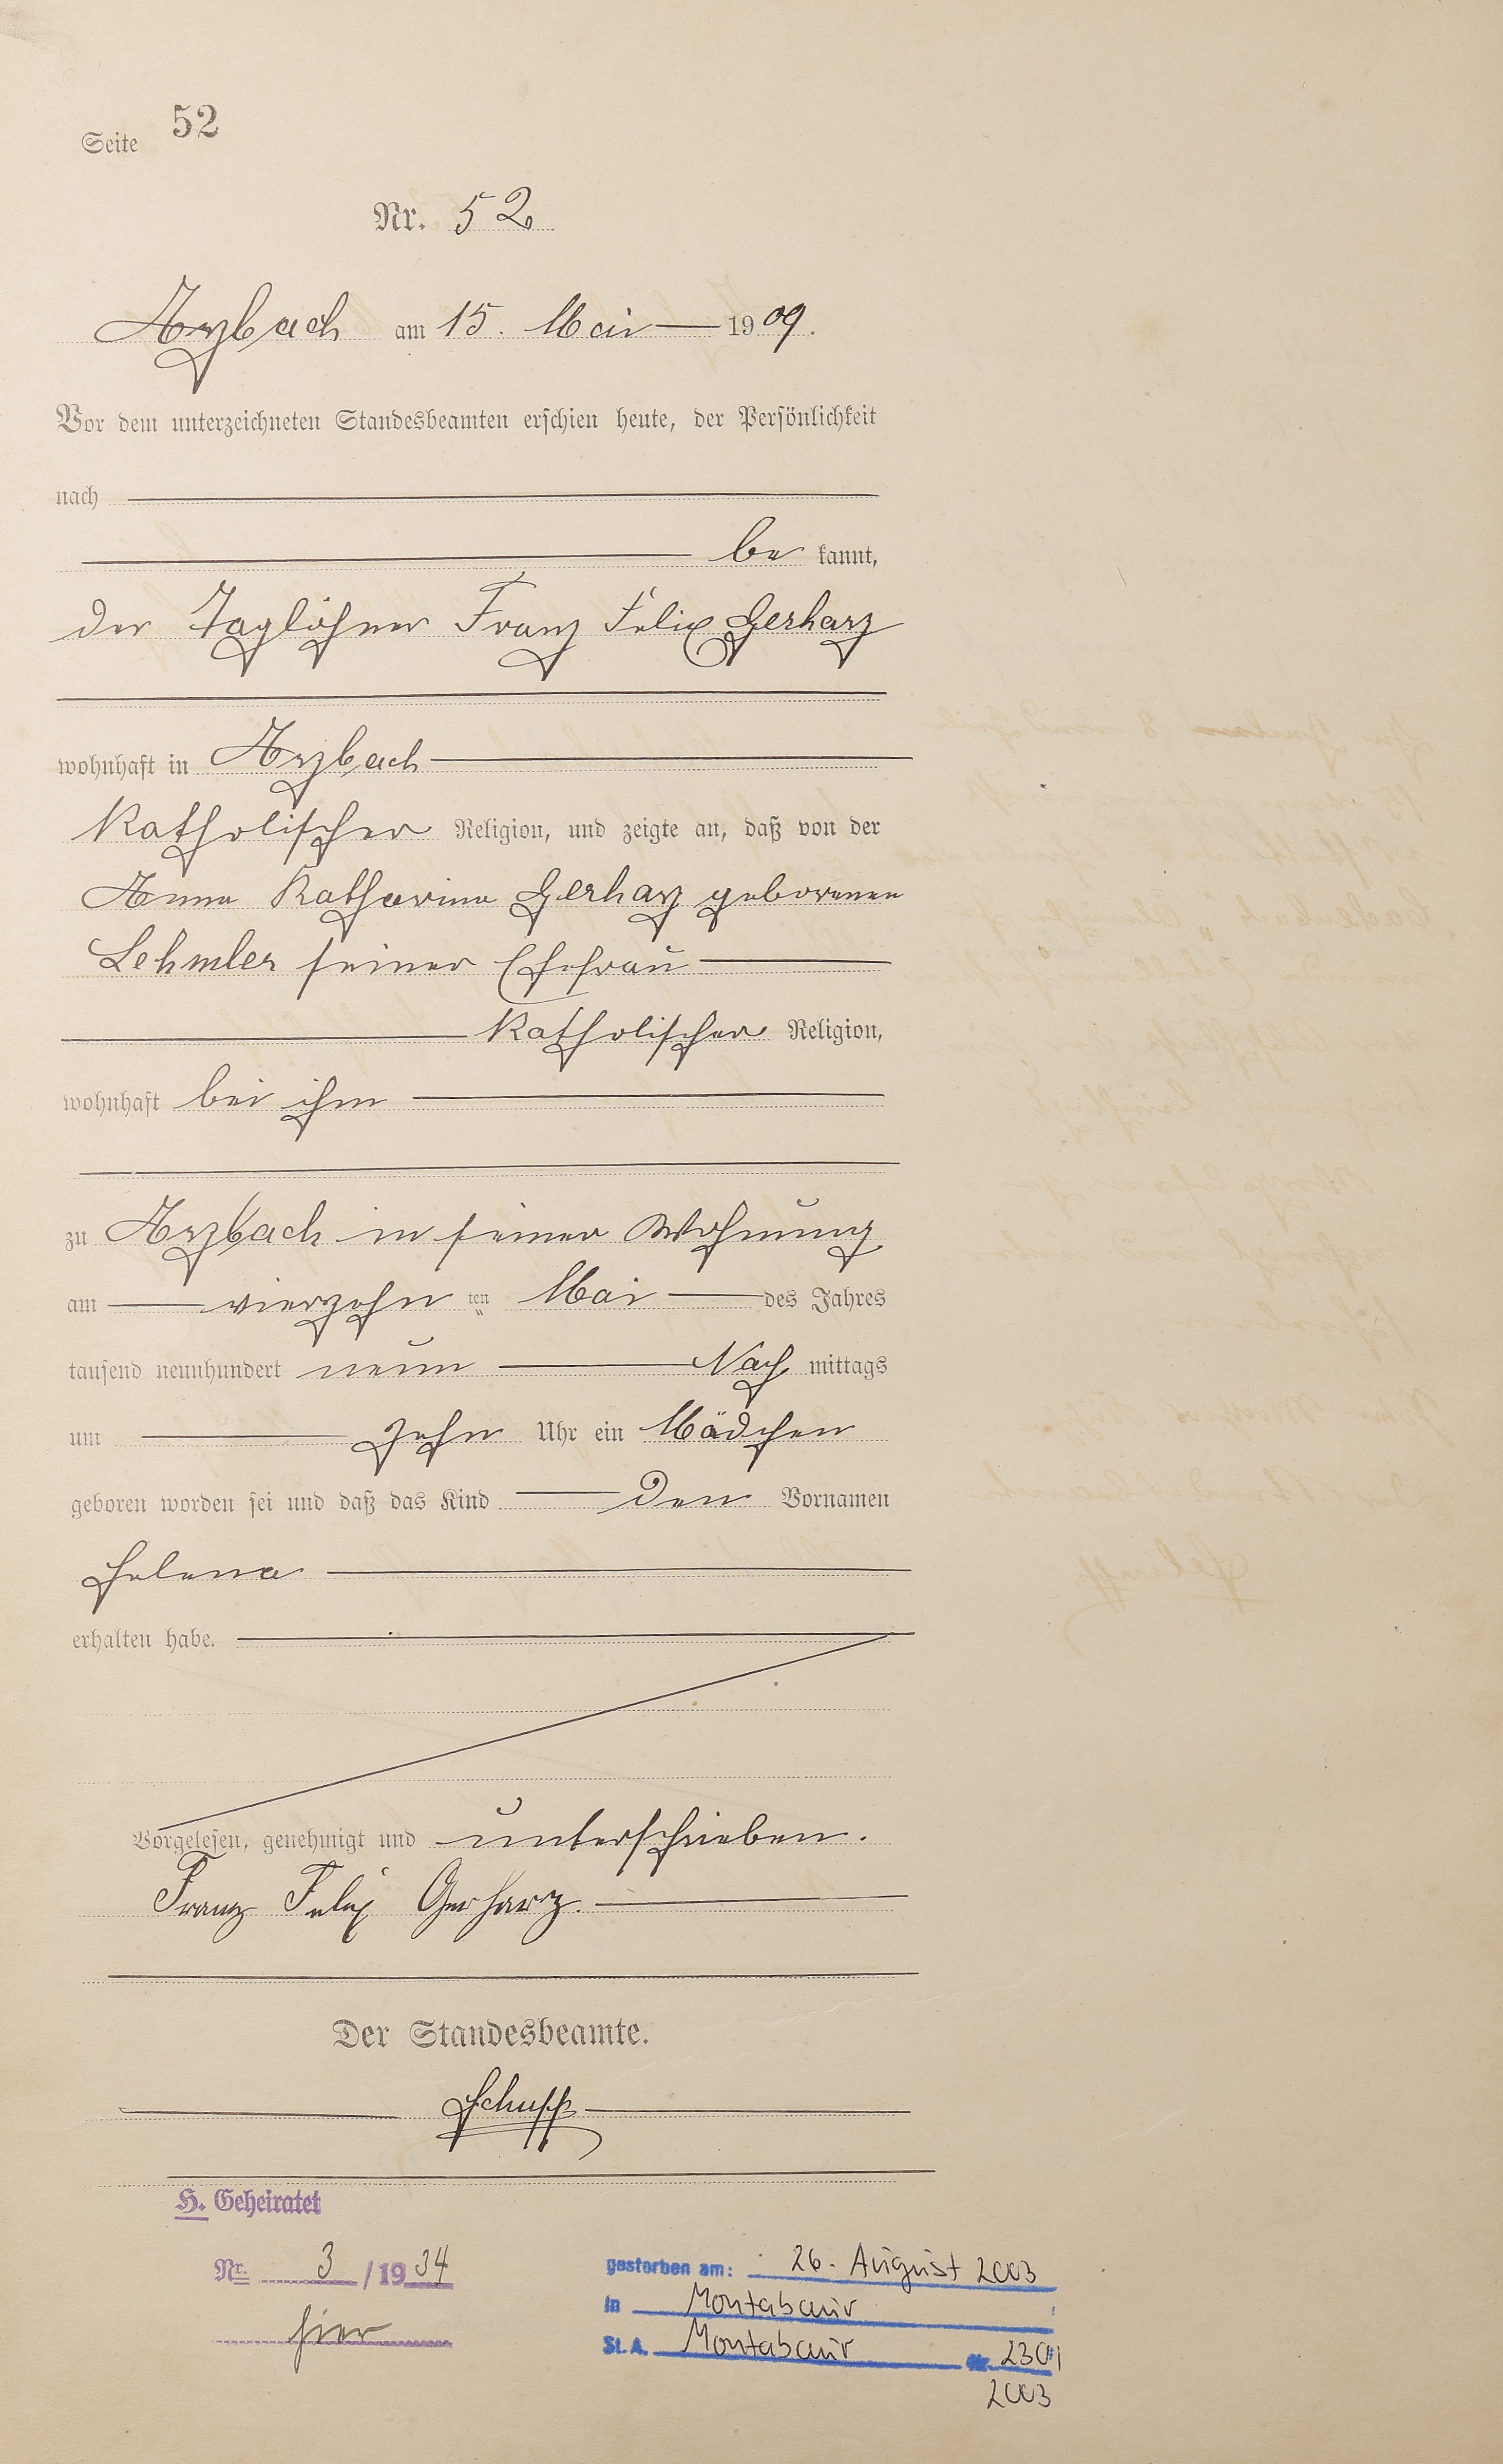 Seite 52
Nr. 52
Arzbach am 15. Mai 1909.
Vor dem unterzeichneten Standesbeamten erschien heute, der Persönlichkeit
nach
be kannt,
der Taglöhner Franz Felix Gerharz
wohnhaft in Arzbach
Katholischer Religion, und zeigte an, daß von der
Anna Katharina Gerharz geborenen
Lehmler seiner Ehefrau
Katholischer Religion,
wohnhaft bei ihm
zu Arzbach in seiner Wohnung
am vierzehn ten Mai des Jahres
tausend neunhundert neun Nach mittags
um zehn Uhr ein Mädchen
geboren worden sei und daß das Kind den Vornamen
Helena
erhalten habe.
Vorgelesen, genehmigt und unterschrieben.
Franz Felix Gerharz.
Der Standesbeamte.
Schupp
H. Geheiratet
Nr. 3 / 1934
hier
gestorben am: 26. August 2003
in Montabaur
St. A. Montabaur Nr. 230/
2003